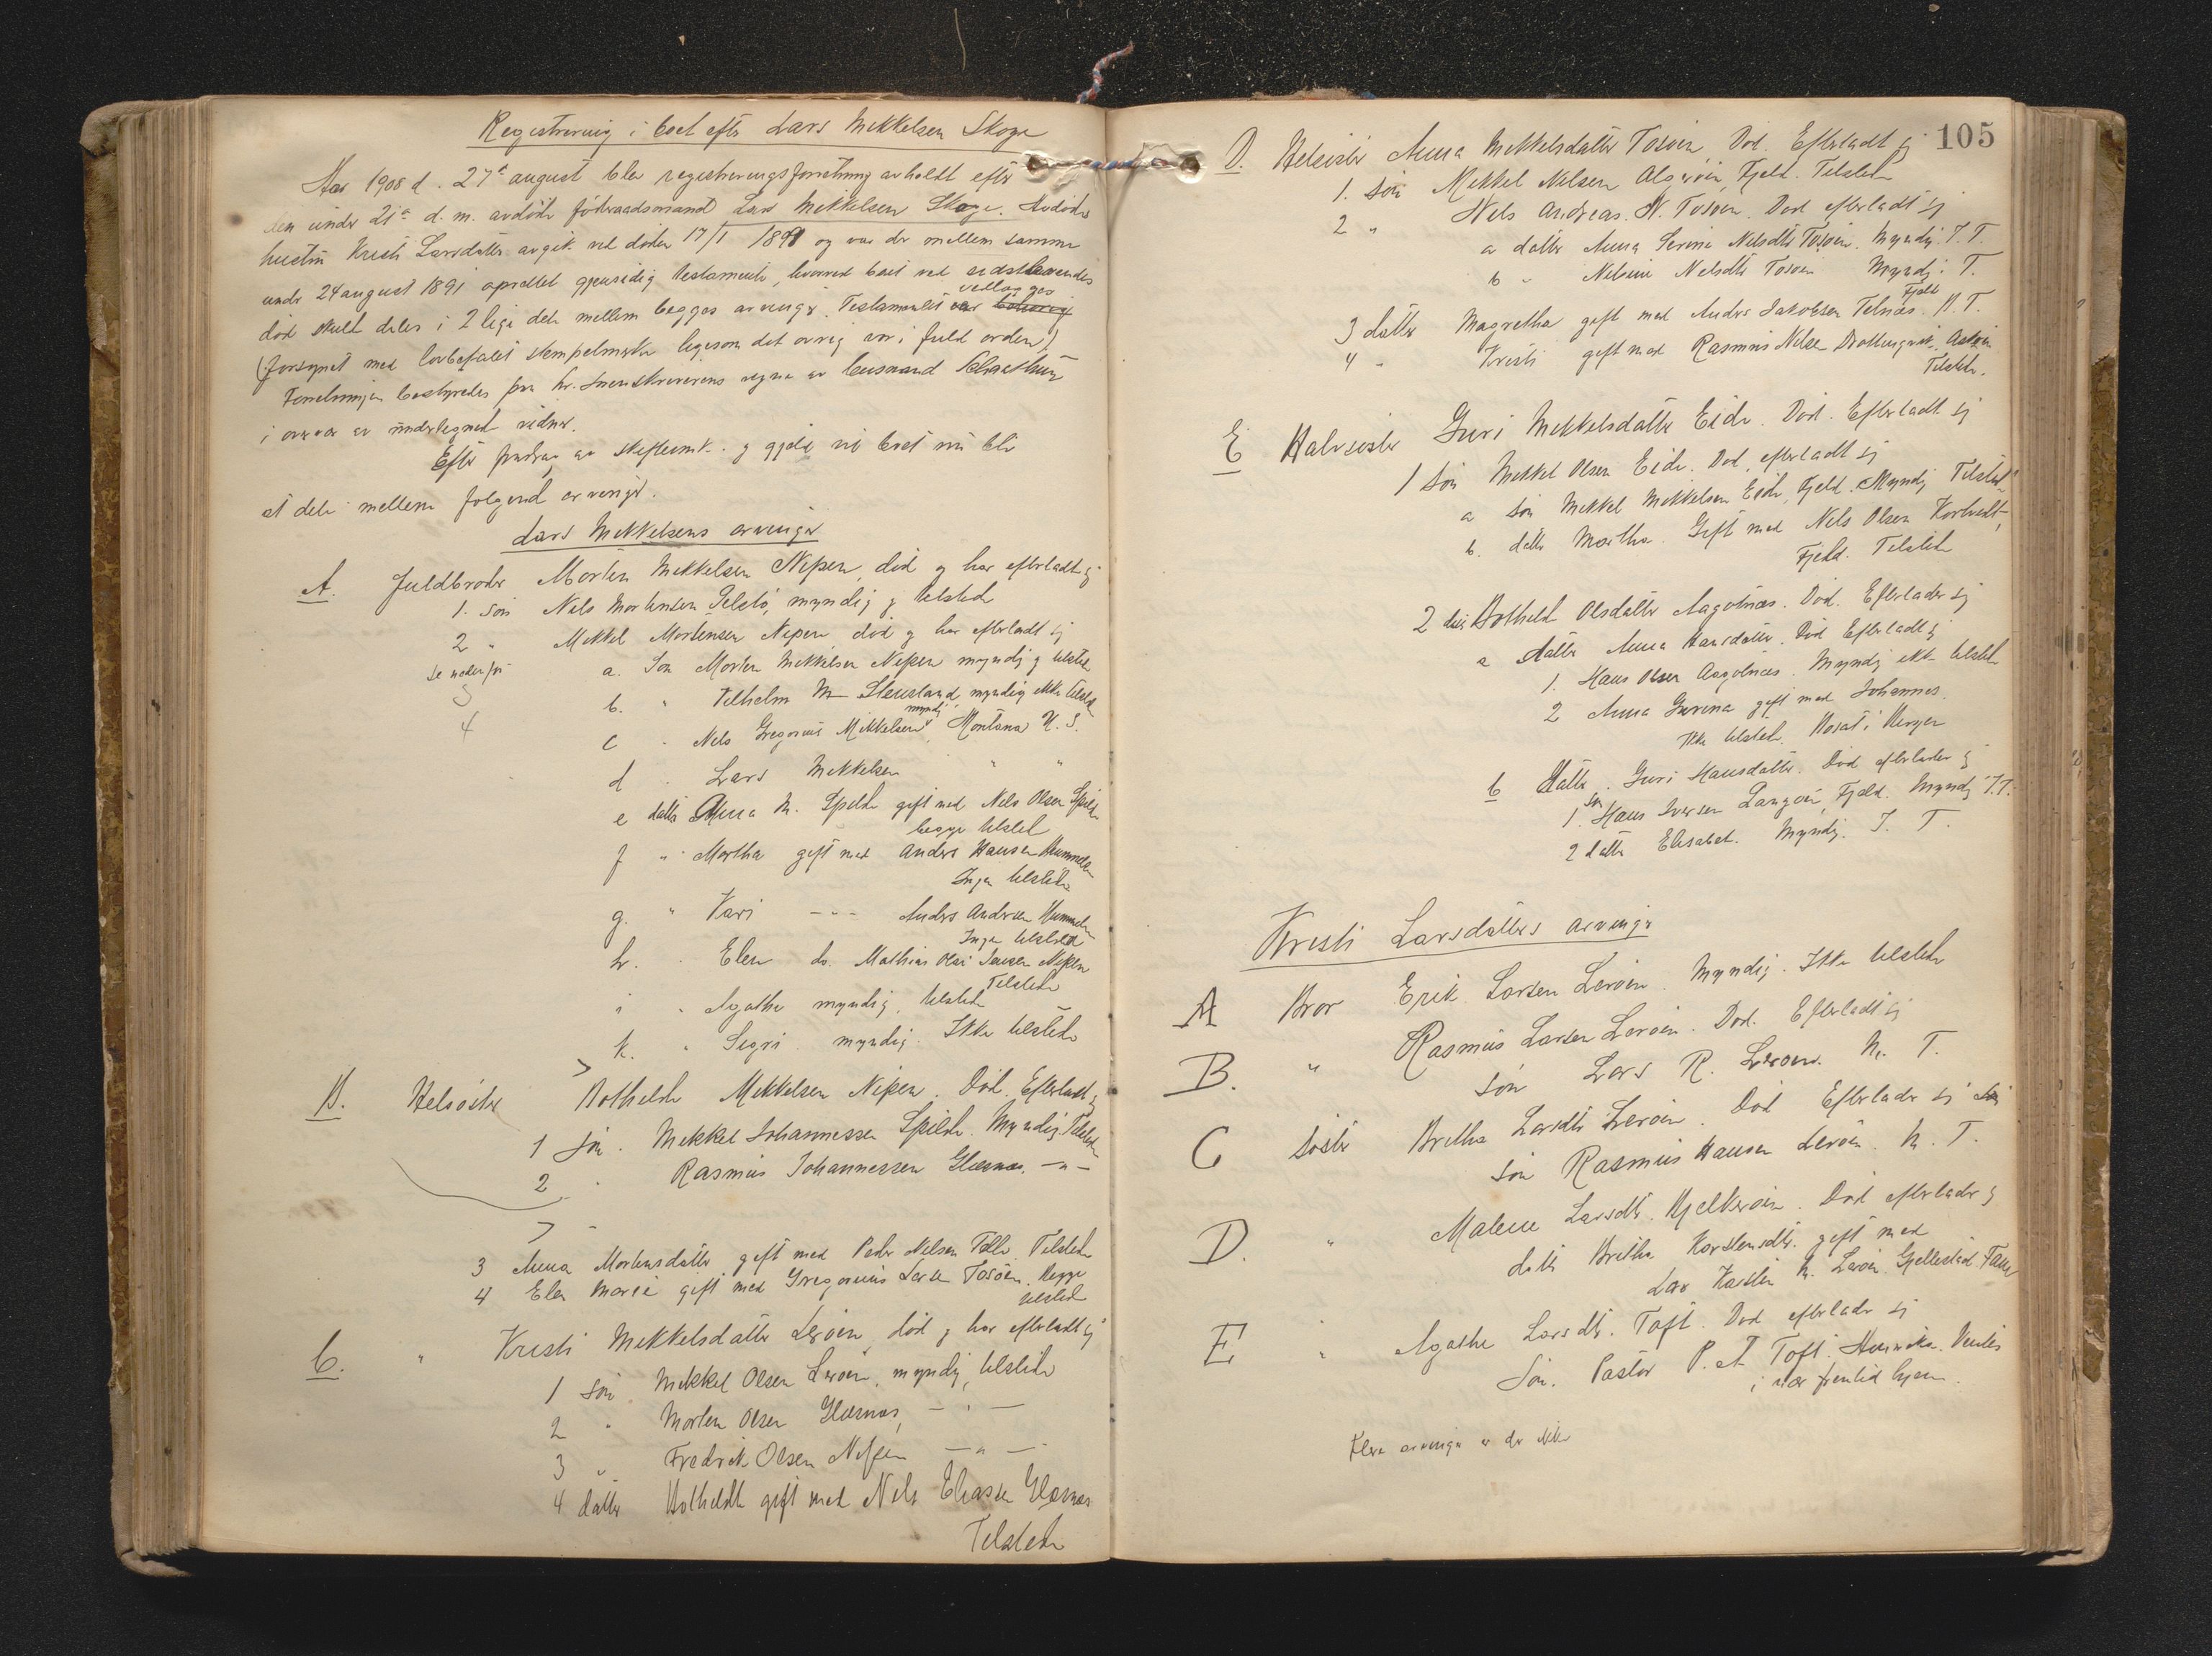 Registrering i boet efter Lars Mikkelsen Skoge
Aar 1908 d. 27de august blev registreringsforretning avholdt efter
den under 21de d. m. avdøde føderaadsmand Lars Mikkelsen Skoge. Avdødes
hustru Kristi Larsdatter avgik ved døden 17/1 1891 og var der mellem samme
under 24 august 1891 oprettet gjensidig testamente, hvorved boet ved sidstlevendes
død skult deles i 2 lige dele mellem begges arvinger. Testamentet vedlægges
(forsynet med lovbefalet stempelmerke ligesom det øvrig var i fuld orden)
Forretningen bestyredes paa hr. Sorenskriverens vegne av lensmand
i overvær av undertegnede vidner.
Efter fradrag av skifteomk. og gjæld vil boet nu bli
at dele mellem følgende arvinger.
Lars Mikkelsens arvinger
A. Fuldbroder Morten Mikkelsen Nipen, død og har efterladt sig
1. søn Nels Mortensen Selstø, myndig og tilstede
2 " Mikkel Mortensen Nipen død og har efterladt sig
se nedenfor
3
4
a. Søn Morten Mikkelsen Nipen myndig og tilstede
b. " Vilhelm M Steusland, myndig ikke tilstede
c " Nels Gregorius Mikkelsen myndig, Montana U. S.
d " Lars Mikkelsen " "
e datter Anna M. Spilde gift med Nels Olsen Spilde
begge tilsted
f " Martha gift med Anders Hansen Hummelsen
Ingen tilstede
g. " Kari - - - Anders Andersen
Ingen tilstede
h. " Elen do. Mathias Olai Jensen Nipen
Tilstede
i " Agathe myndig, tilstede
k. " Sigri myndig. Ikke tilstede
B. Helsøster Bothilde Mikkelsen Nipen. Død. Efterladt sig
1 søn. Mikkel Johannessen Spilde. Myndig. Tilstede
2 " Rasmus Johannessen Glesnæs. — " —
3 Anna Mortensdatter gift med Peder Nilsen Telle. Tilstede
4 Elen Marie gift med Gregorius Larsen Tosøen. Begge
tilsted
C. " Kristi Mikkelsdatter Lerøen, død og har efterladt sig
1 søn Mikkel Olsen Lerøen, myndig, tilstede
2 " Morten Olsen Glesnæs, — " —
3 " Fredrik Olsen Nipen — " —
4 datter Botheldt gift med Nels Eliassen Glesnæs
Tilstede
105
D. Helsister Anna Mikkelsdatter Tosøen, Død. Efterladt sig
1. søn Mikkel Nilsen Algerøen, Fjeld. Tilsted
2 " Nels Andreas N. Tosøen. Død efterladt sig
a datter Anna Serine Nelsdtr Tosøen. Myndig. I. T.
b " Nelsine Nelsdtr Tosøen Myndig I. T.
3 datter Magretha gift med Anders Jakobsen Telnæs. Fjeld N. T.
4 " Kristi gift med Rasmus Nilsen Askøen
Tilstede.
E Halvsister Guri Mikkelsdatter Eide. Død. Efterladt sig
1 søn Mikkel Olsen Eide. Død, efterladt sig
a søn Mikkel Mikkelsen Eide, Fjeld. Myndig Tilsted
b. datter Martha. Gift med Nils Olsen Kortvedt,
Fjeld. Tilstede
2 datter Botheld Olsdatter Aagotnæs. Død. Efterlader sig
a datter Anna Hansdatter. Død Efterladt sig
1. Hans Olsen Aagotnæs. Myndig ikke tilstede
2 Anna Gurina gift med Johannes.
Ikke tilstede. Bosat i Bergen
b Datter. Guri Hansdatter. Død efterlader sig
1. søn Hans Iversen Langøen, Fjeld. Myndig I. T.
2 datter Elisabet. Myndig. I. T.
Kristi Larsdatters arvinger
A Bror Erik Larsen Lerøen. Myndig. Ikke tilstede
B. " Rasmus Larsen Lerøen. Død. Efterladt sig
søn Lars R. Lerøen. M. T.
C Søster Britha Larsdtr Lerøen. Død Efterlader sig
søn Rasmus Hansen Lerøen. M. T.
D. " Malene Larsdtr. Bjelkerøen. Død efterlader sig
datter Britha Karstensdtr. gift med
Lars Karsten M. Lerøen Gjellestad Fane
E " Agathe Larsdtr. Toft. Død efterlader sig
Søn. Pastor P. A. Toft. Amerika. Ventes
i nær fremtid hjem.
Flere arvinger er der ikke